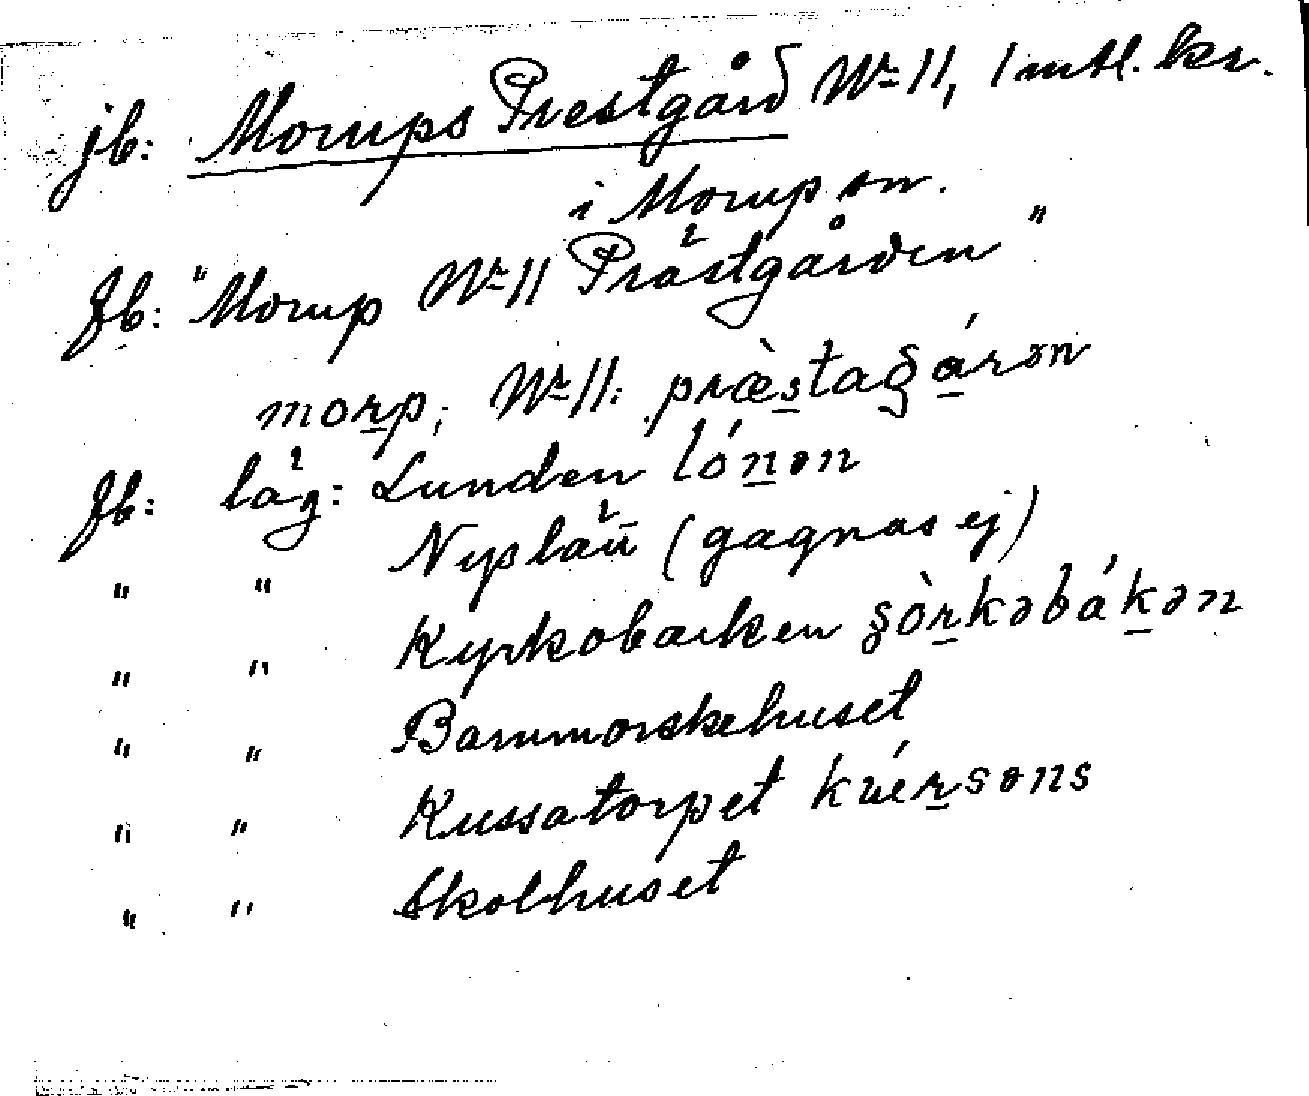 jb: Morups Prestgård Nr 11, 1 mtl. kr.
i Morup sn.
Jb: "Morup Nr 11 Prästgården"
morp, Nr 11: præ̀stagárən
Jb: läg: Lunden lónən
" " Nyplan (gagnas ej)
" " Kyrkobacken ʂòrkəbákən
" " Barnmorskehuset
" " Kussatorpet kúérsəns
" " Skolhuset